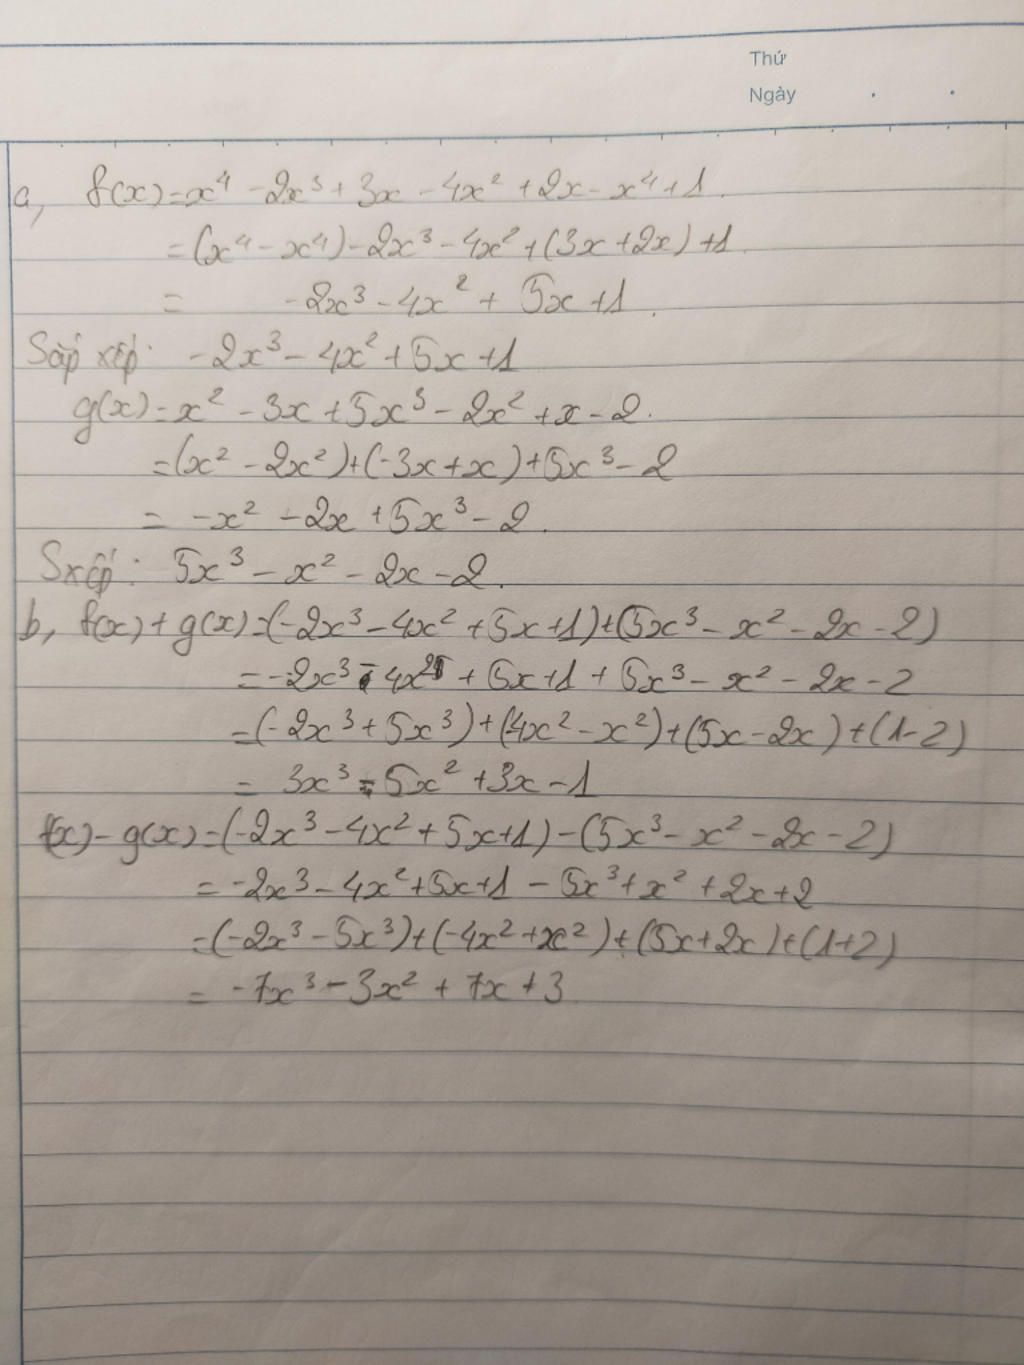 Thứ
Ngày
a, f(x)=x⁴ -2x³+3x-4x²+2x-x⁴+1.
=(x⁴-x⁴)-2x³-4x²+(3x+2x)+1.
= -2x³-4x²+5x+1.
Sắp xếp: -2x³-4x²+5x+1
g(x)=x²-3x+5x³-2x²+x-2.
=(x²-2x²)+(-3x+x)+5x³-2
= -x²-2x+5x³-2.
Sxếp: 5x³-x²-2x-2.
b, f(x)+g(x)=(-2x³-4x²+5x+1)+(5x³-x²-2x-2)
=-2x³-4x²+5x+1+5x³-x²-2x-2
=(-2x³+5x³)+(-4x²-x²)+(5x-2x)+(1-2)
= 3x³-5x²+3x-1
f(x)-g(x)=(-2x³-4x²+5x+1)-(5x³-x²-2x-2)
=-2x³-4x²+5x+1-5x³+x²+2x+2
=(-2x³-5x³)+(-4x²+x²)+(5x+2x)+(1+2)
= -7x³-3x²+7x+3